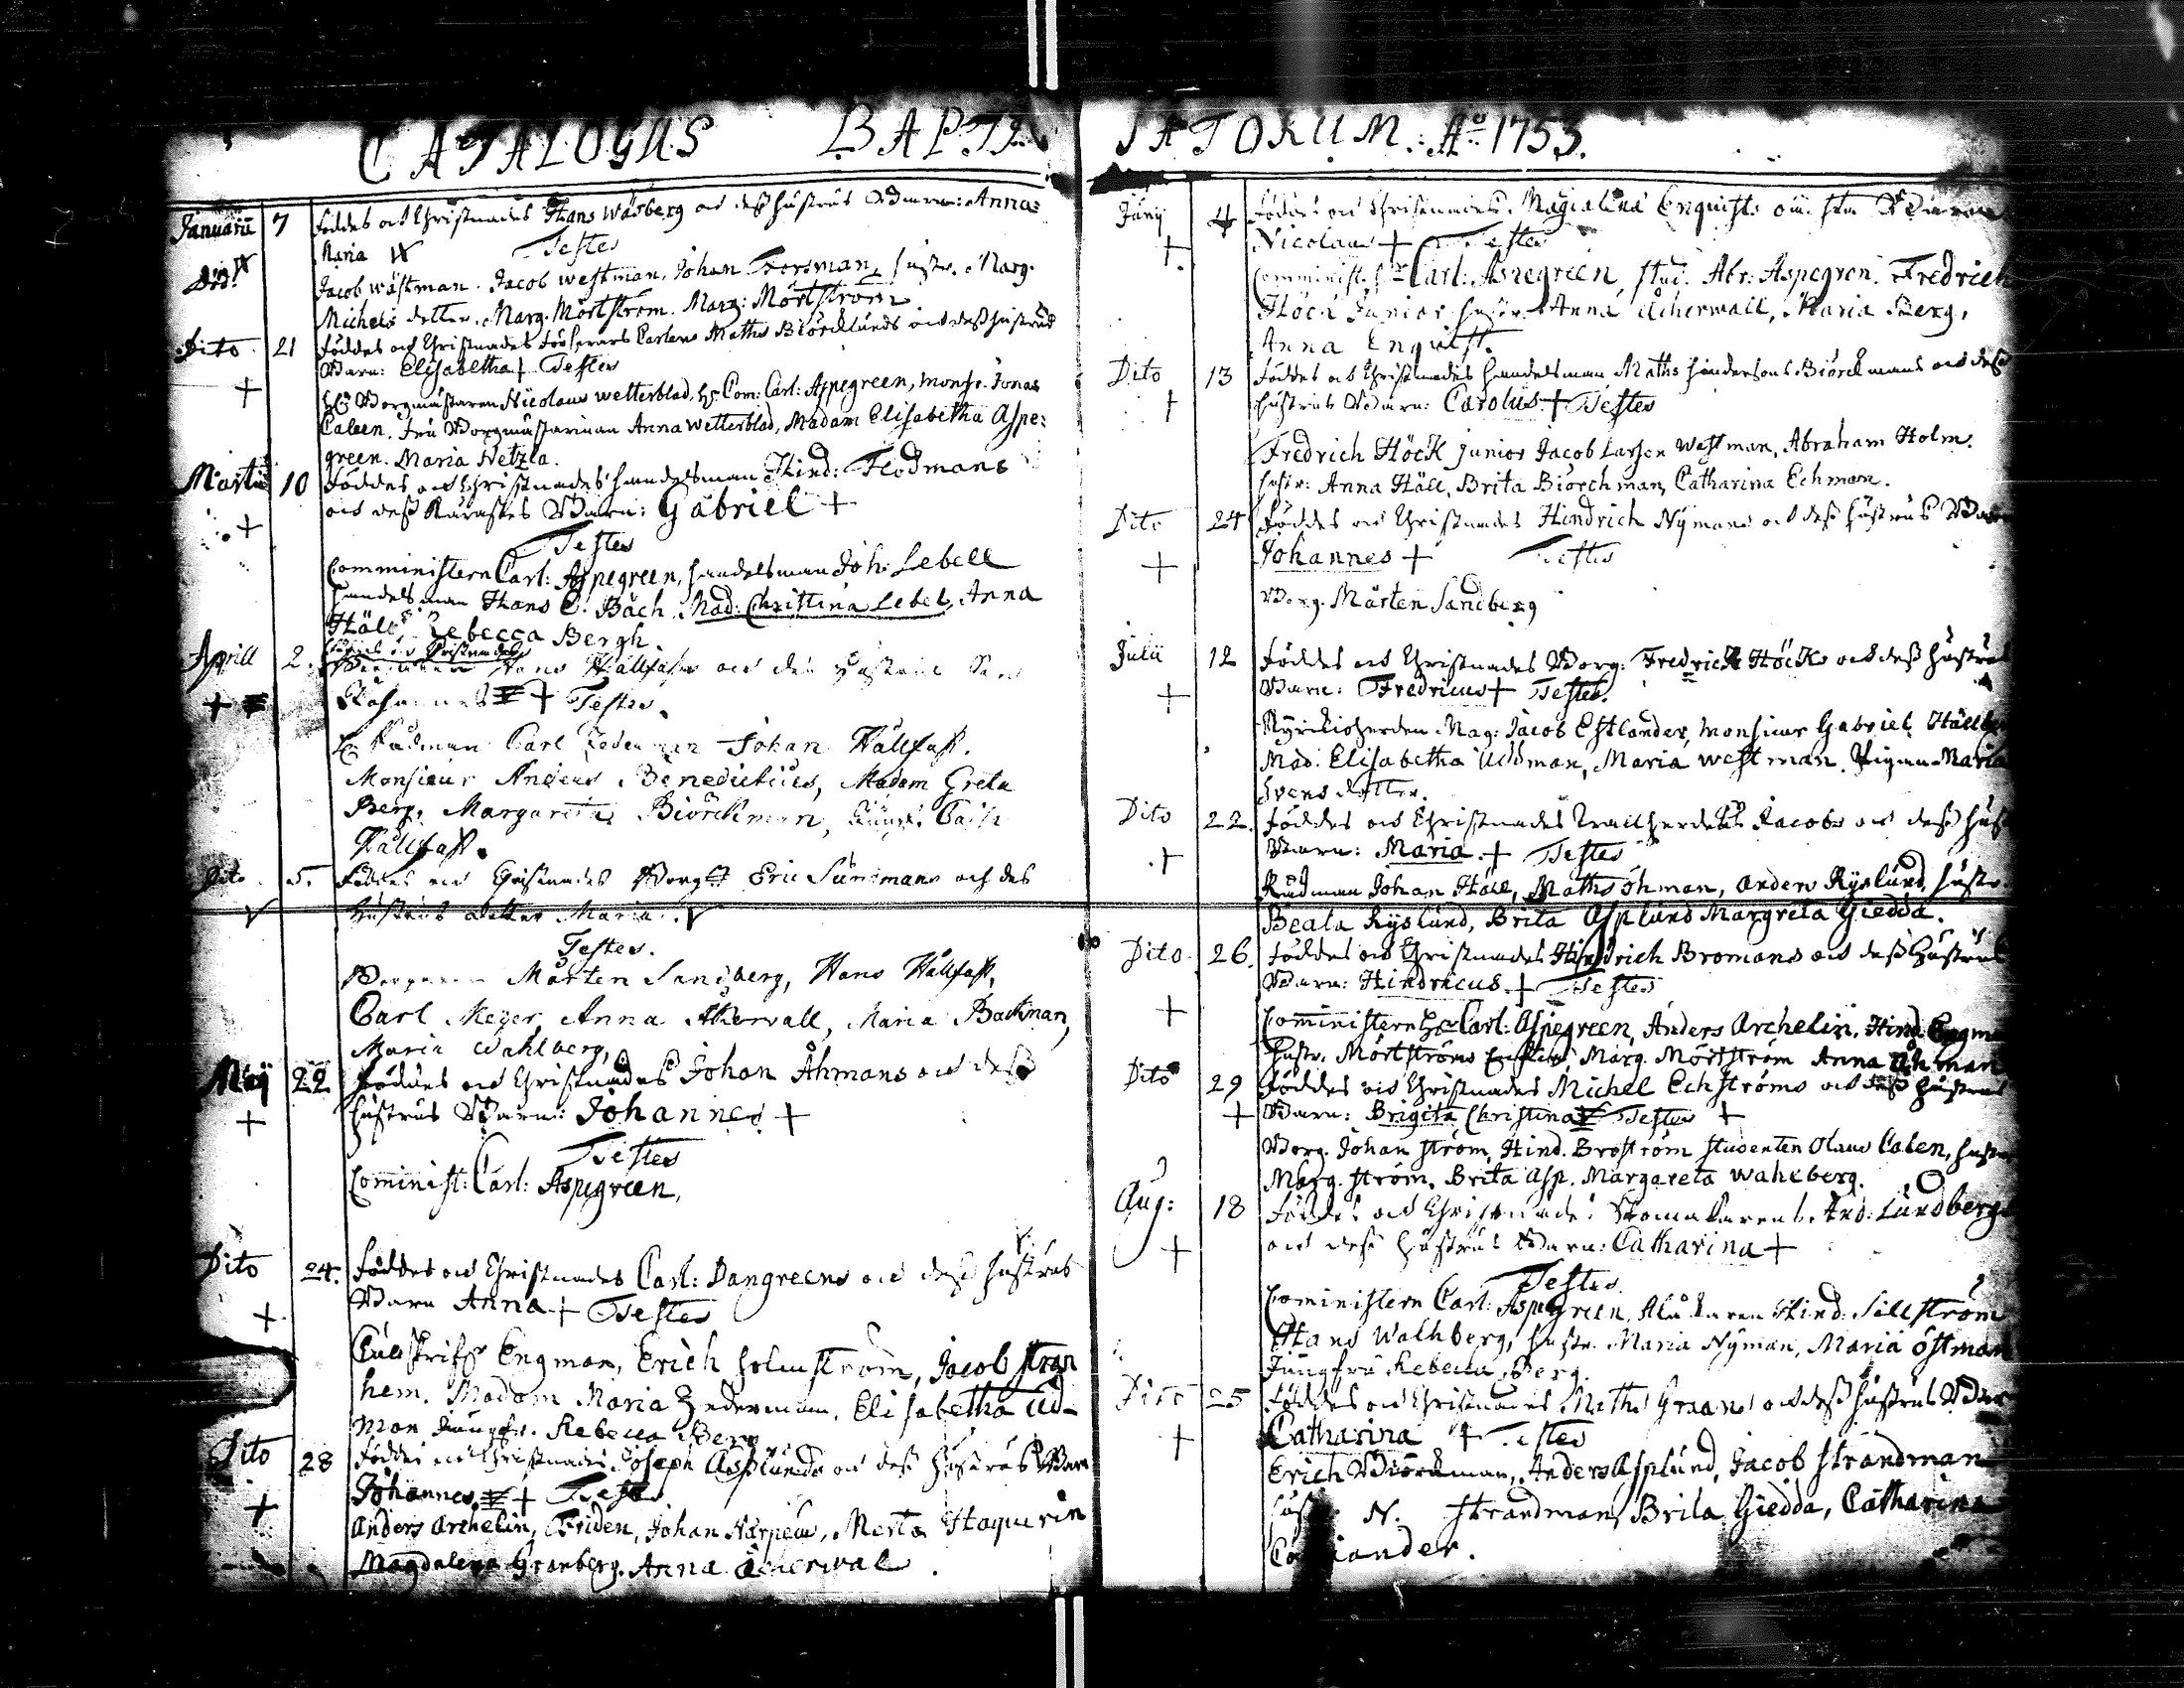 CATALOGUS BAPTI
Januarii 7 föddes och Christnades Hans Wasberg och dess hustrus Barn: Anna
Maria
Testes
Död
Jacob wästman. Jacob westman, Johan Forsman, hustr. Marg.
Michels dotter. Marg. Mörtström. Marg: Mörtström
Dito 21 föddes och Christnades Matths Biörcklunds och dess hustrus
Barn: Elisabetha + Testes
+
Borgmästaren Nicolaus wetterblad, Hr Com: Carl: Aspegreen, Monsr. Jonas
Caleen. Fru Borgmästarinnan Anna wetterblad, Madam Elisabetha Aspe:
green. Maria Netzla.
Martii 10 föddes och Christnades handelsman Hind: Flodmans
och dess Käraste Barn: Gabriel +
+
Testes
Comministern Carl: Aspegreen, handelsman Joh: Lebell
handelsman Hans C. Bäch. Mad: Christina Lebel, Anna
Häll, Rebecca Bergh.
Aprill 2. föddes och Christnades
Hans Hällfast och des hustrus
Johannes + Testes.
+
Rådman Carl Johan Hällfast.
Monsieur Anders Benedictius, Madam Greta
Berg, Margareta Biörckman, Jungf. Cath
Hällfast.
Dito 5. föddes och Christnades Borg Eric Sundmans och des
hustrus dotter Maria.
Testes.
Borgaren Mårten Sandberg, Hans Hällfast,
Carl Meyer, Anna Åkervall, Maria Backman,
Maria Wahlberg,
Maij 22 föddes och Christnades Johan Åhmans och dess
hustrus Barn: Johannes +
+
Testes
Comminist: Carl: Aspegreen,
Dito 24. föddes och Christnades Carl: Dangreens och dess hustrus
Barn Anna + Testes
+
Engman, Erich Holmström, Jacob stran
hem. Madam Maria Zederman, Elisabetha Ud-
man Jungfr. Rebecca Berg
Dito 28 föddes och Christnades Joseph Asplunds och dess hustrus Barn
Johannes + Testes
+
Anders Archelin, Friden, Johan Harpeus, Merta Haqurin
Magdalena Granberg. Anna Åckerwal.
SATORUM: Ao 1753.
Junij 4 föddes och Christnades Magdalena Enquists Barn
Nicolaus + Testes
+
Comminist. Hr Carl: Aspegreen, stud. Abr: Aspegren. Fredrich
Höck Junior hustr. Anna Åcherwall, Maria Berg,
Anna Enquist.
Dito 13 föddes och Christnades handelsman Maths Hindersons Biörckmans och dess
hustrus Barn: Carolus + Testes
+
Fredrich Höck junior Jacob Larson Westman, Abraham Holm.
hustr: Anna Häll, Brita Biörchman, Catharina Echman.
Dito 24 föddes och Christnades Hindrich Nymans och dess hustrus Barn
Johannes + Testes
+
Borg. Mårten Sandberg
Julii 12 föddes och Christnades Borg. Fredrick Höcks och dess hustrus
Barn: Fredricus + Testes.
+
Kyrkioherden Mag: Jacob Estlander, Monsieur Gabriel Häll
Mad. Elisabetha Uddman, Maria westman. Pigan Maria
Svens dotter.
Dito 22. föddes och Christnades Jacobs och dess hust
Barn: Maria + Testes
+
Rådman Johan Häll, Maths öhman, Anders Ryslund, hustr.
Beata Ryslund, Brita Asplund Margreta Giedda.
Dito 26. föddes och Christnades Hindrich Bromans och dess hustrus
Barn: Hindricus + Testes
+
Comministern Hr Carl: Aspegreen, Anders Archelin, Hind. Engman
hustr. Mörtströms Marg. Mörtström Anna Åhman
Dito 29 föddes och Christnades Michel Echströms och dess hustrus
+ Barn: Brigita Christina Testes +
Borg. Johan ström, Hind. Broström studenten Olaus Calen, hustr
Marg. ström, Brita Asp. Margareta Wahlberg.
Aug: 18 föddes och Christnades And: Lundbergs
och dess hustrus Barn: Catharina +
+
Testes
Cominístern Carl: Aspegreen, Hind: Sillström
Hans Wahlberg, hustr. Maria Nyman, Maria östman
Jungfru Rebecka Berg.
Dito 25 föddes och Christnades Maths Graans och dess hustrus Barn
Catharina + Testes
+
Erich Biörkman, Anders Asplund, Jacob Strandman
N. Strandman, Brita Giedda, Catharina